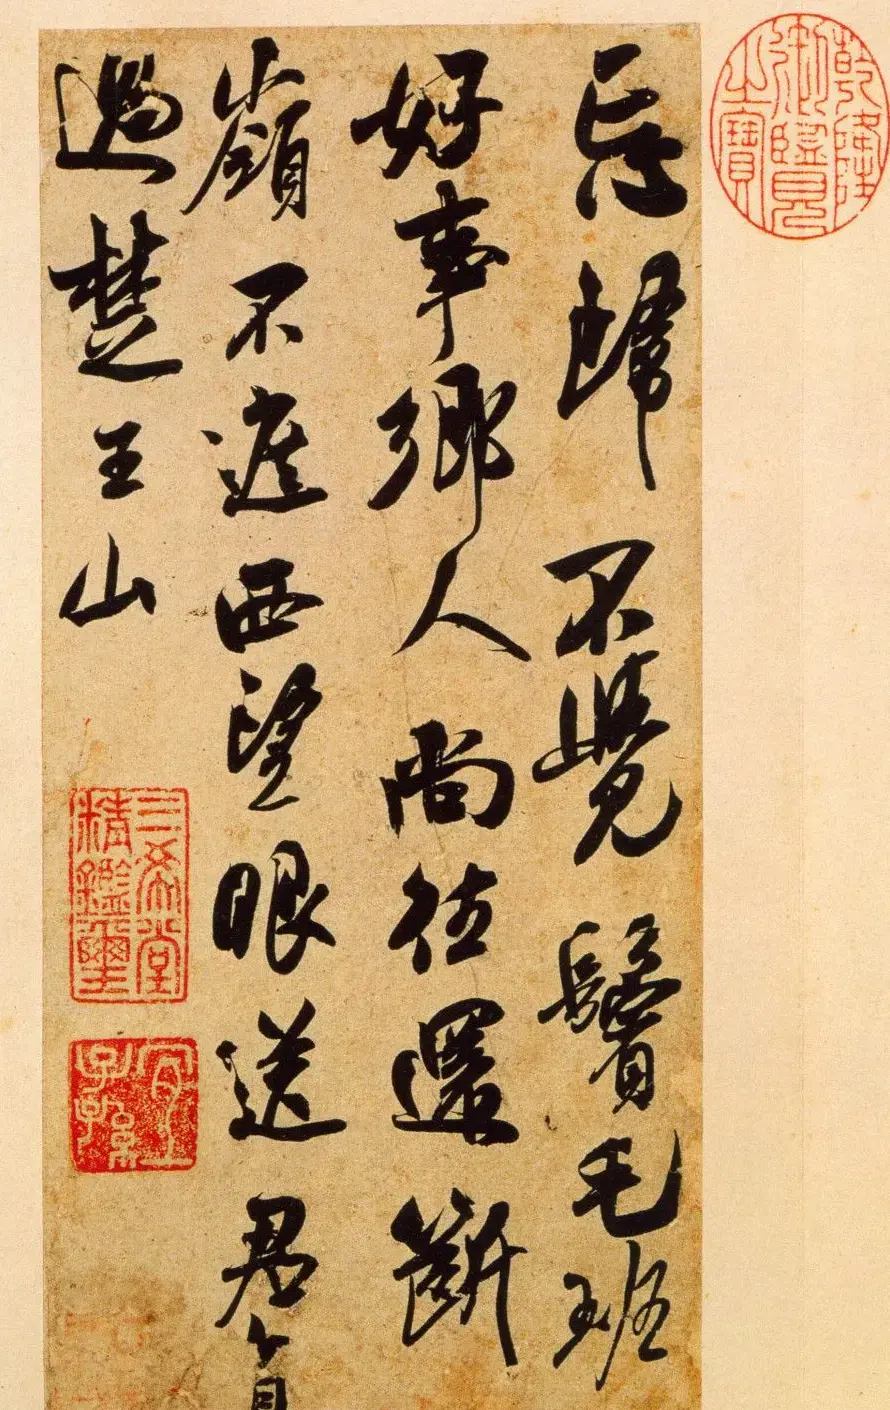 乾隆御覽之寶
忘歸不覺鬢毛班
好事鄉人尚往還斷
嶺不遮西望眼送君直
過楚王山
三希堂精鑑璽
宜子孫